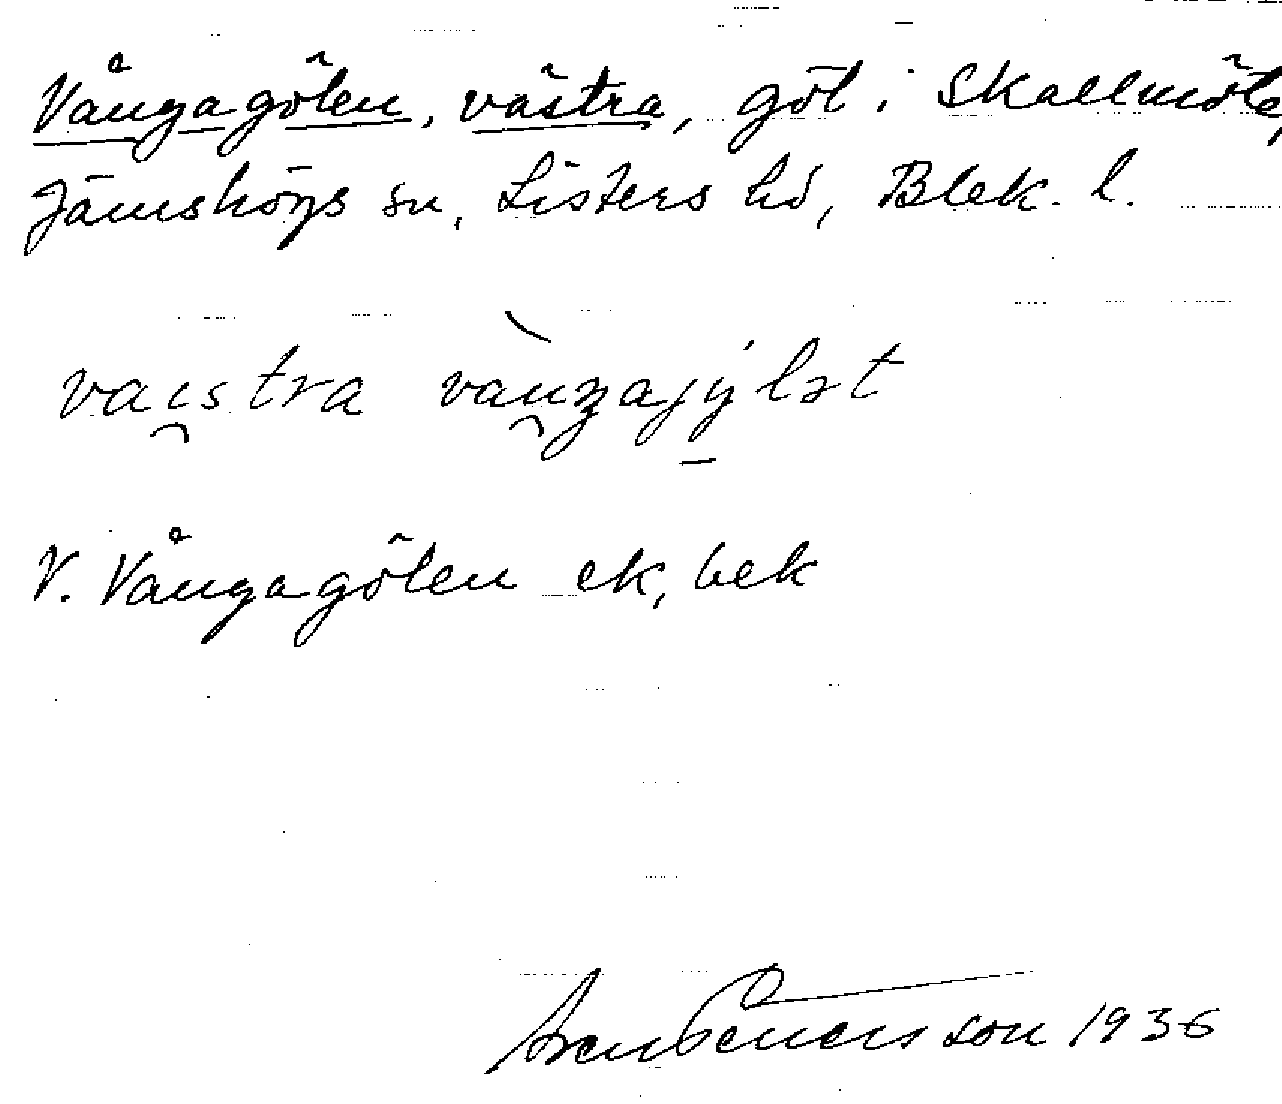 Vångagölen, västra, göl i Skallmöle,
Jämshögs sn, Listers hd, Blek. l.
vai̯stra vàu̯ŋajy̱lət
V. Vångagölen ek, bek
1936